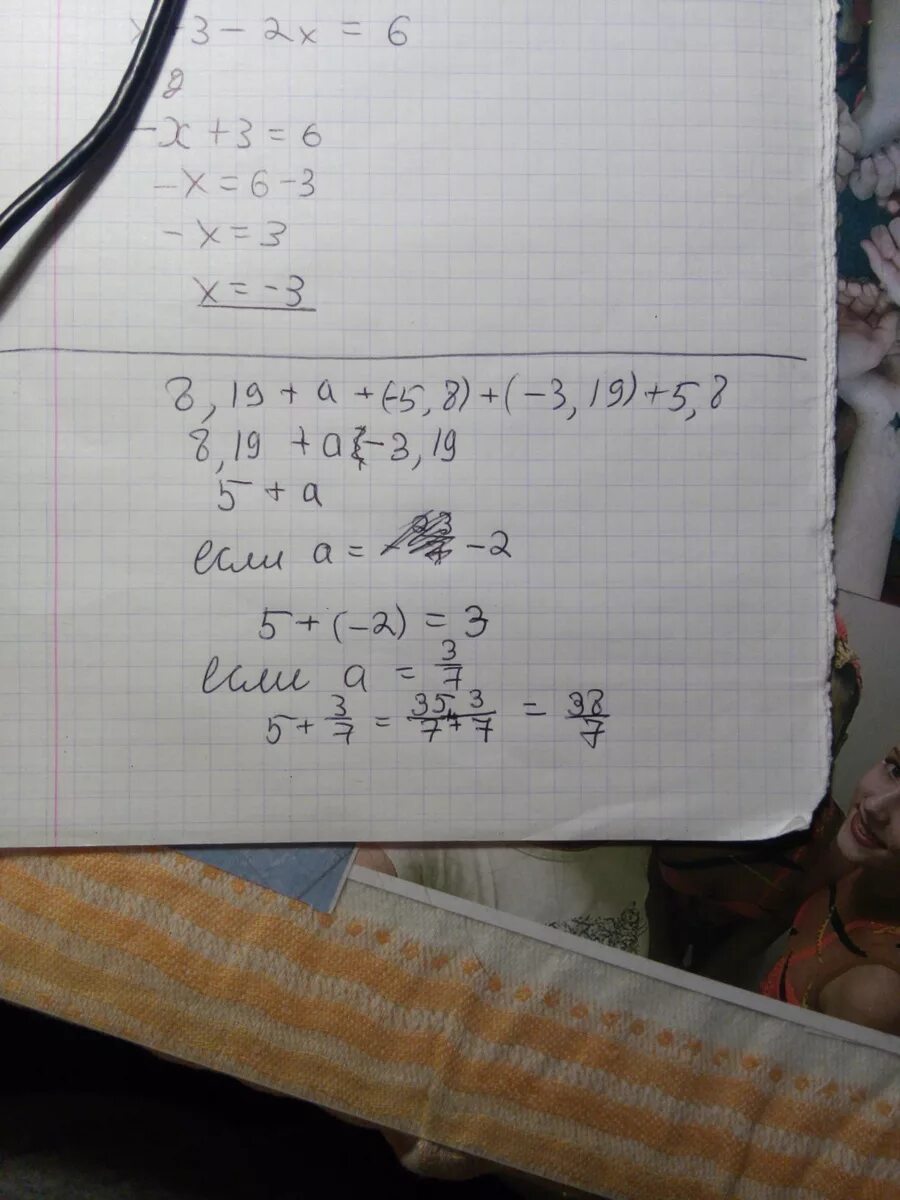 3 - 2x = 6
-x + 3 = 6
-x = 6 - 3
-x = 3
x = -3
8,19 + a + (-5,8) + (-3,19) + 5,8
8,19 + a - 3,19
5 + a
если a = -2
5 + (-2) = 3
если a = 3/7
5 + 3/7 = 35/7 + 3/7 = 38/7